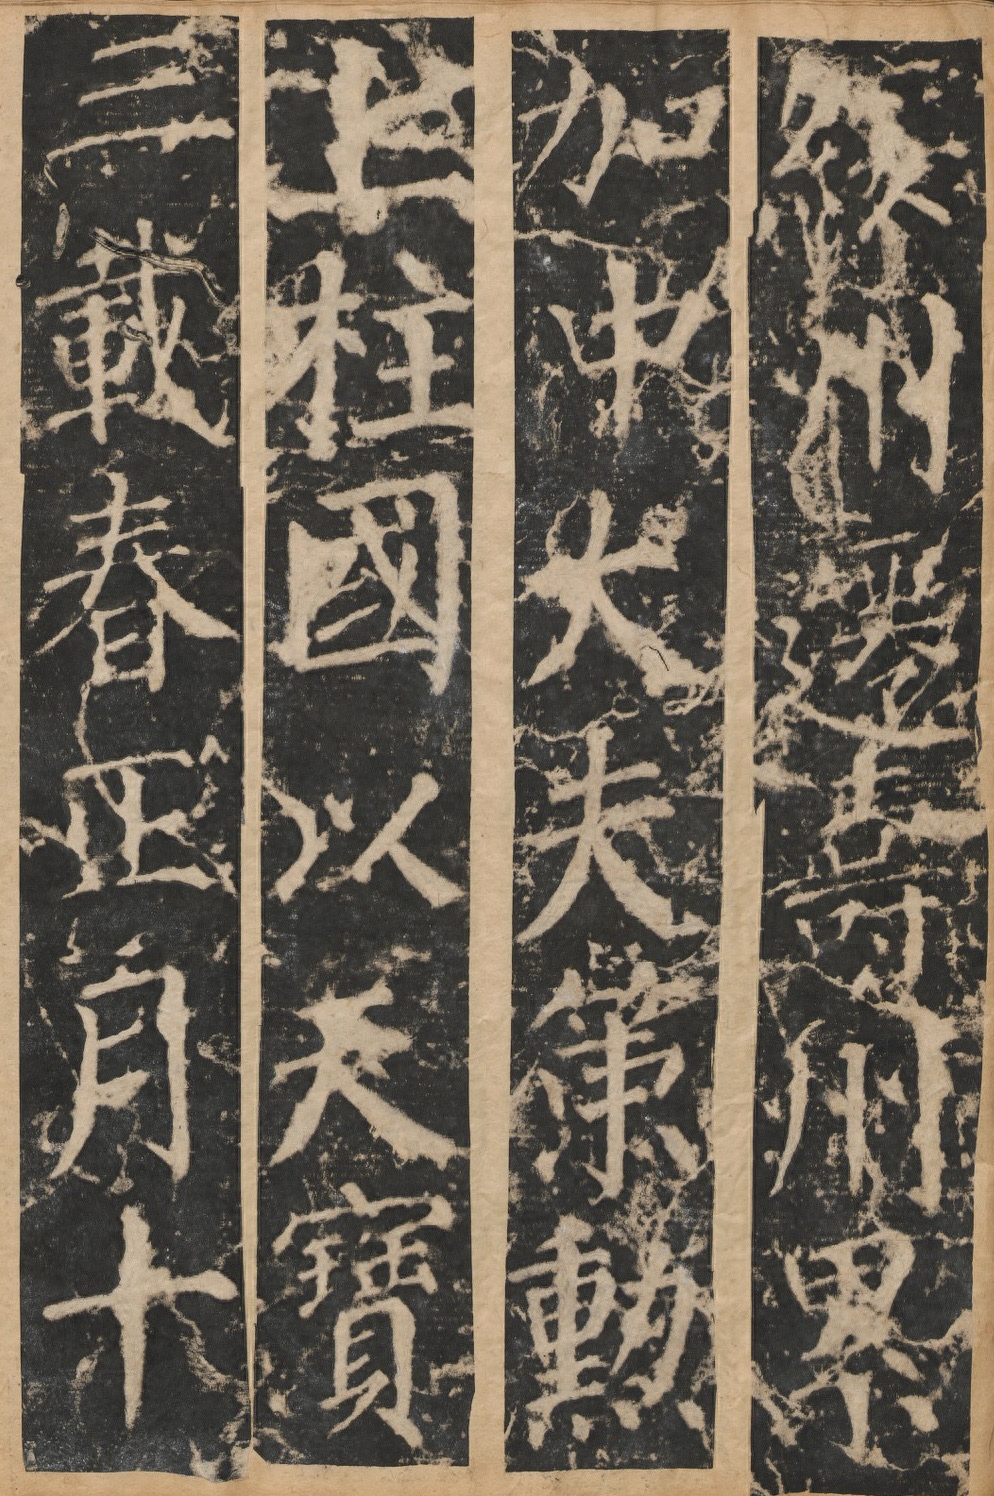 州遷壽州累
加中大夫策勳
上柱國以天寶
三載春正月十